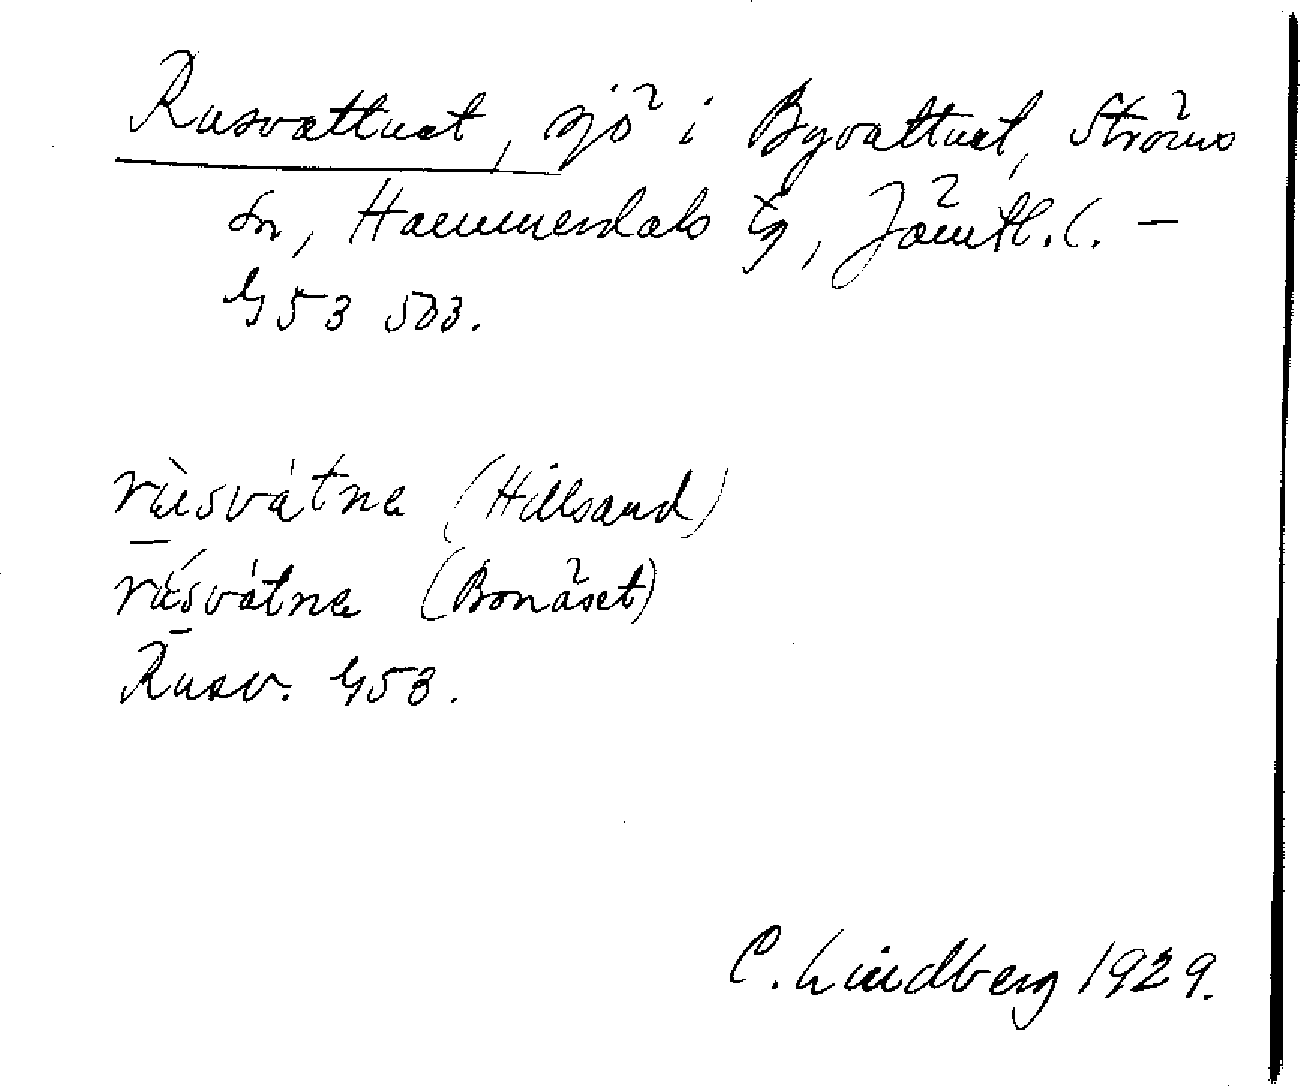 Rusvattnet, sjö i Byvattnet, Ströms
sn, Hammerdals tg, Jämtl. l. –
G53 SO3.
rùsvátna (Hillsand)
rúsvátna (Bonäset)
Rusv. G53.
C. Lindberg 1929.